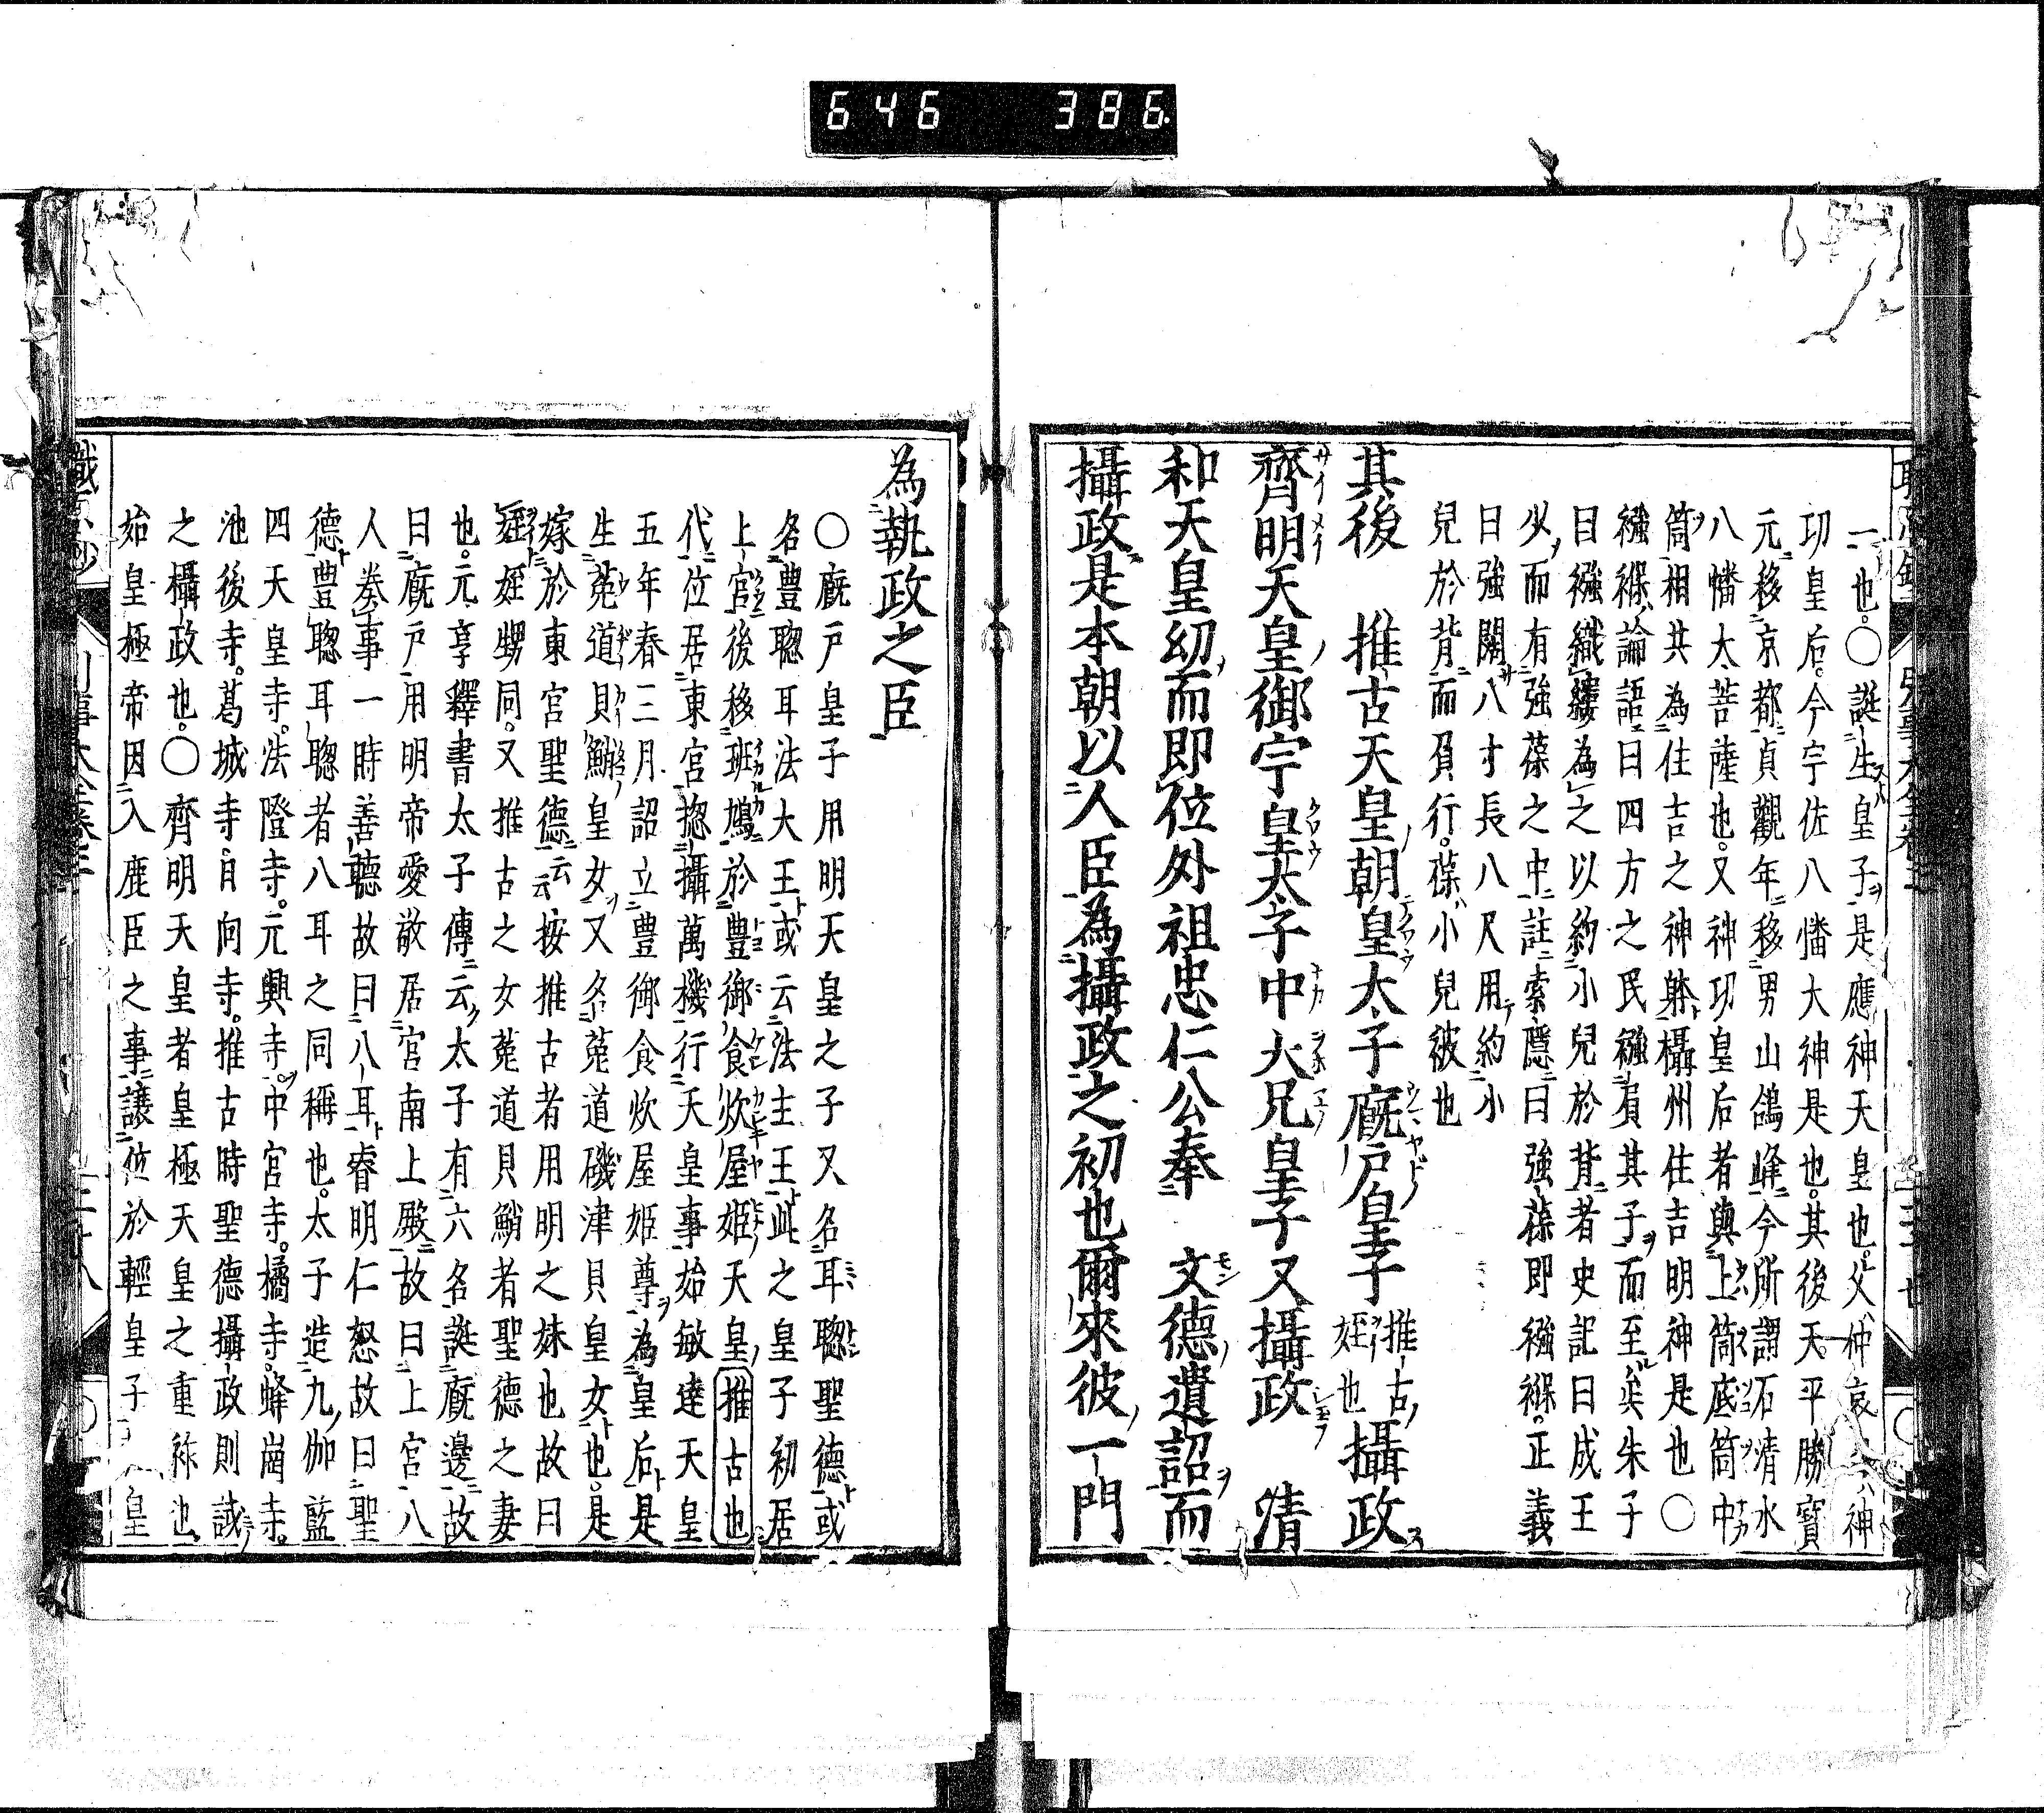 646 386.
一也。〇誕生皇子是應神天皇也。父仲哀神
功皇后。今宇佐八幡大神是也。其後天平勝寳
元移京都貞觀年移男山鴿峰今所謂石清水
八幡大菩薩也。又神功皇后者與上筒底筒中
筒相共為住吉之神躰攝州住吉明神是也〇
襁褓論語曰四方之民襁負其子而至矣朱子
曰襁織縷為之以約小兒於背者史記曰成王
少而有強葆之中註索隱曰強葆即襁褓。正義
曰強闊八寸長八尺用約小
兒於背而負行。葆小兒被也
其後 推古天皇朝皇太子廐戸皇子推古姪也攝政
齊明天皇御宇皇太子中大兄皇子又攝政 清
和天皇幼而即位外祖忠仁公奉 文德遺詔而
攝政是本朝以人臣為攝政之初也爾來彼一門
為執政之臣
〇廐戸皇子用明天皇之子又名耳聰聖德或
名豊聰耳法大王或云法主王此之皇子初居
上宮後移班鳩於豊御食炊屋姫天皇推古也
代位居東宮揔攝萬機行天皇事始敏達天皇
五年春三月詔立豊御食炊屋姫尊為皇后是
生菟道貝鮹皇女又名菟道磯津貝皇女也。是
嫁於東宮聖德云云按推古者用明之妹也故曰
姪姪甥同。又推古之女菟道貝鮹者聖德之妻
也。元亨釋書太子傳云太子有六名誕廐邊故
曰廐戸用明帝愛敬居宮南上殿故曰上宮八
人奏事一時善聽故曰八耳睿明仁恕故曰聖
德豊聰耳聰者八耳之同稱也。太子造九伽藍
四天皇寺。法隆寺。元興寺。中宮寺。橘寺。蜂崗寺。
池後寺。葛城寺。日向寺。推古時聖德攝政則誠
之攝政也。〇齊明天皇者皇極天皇之重祚也
始皇極帝因入鹿臣之事讓位於輕皇子皇